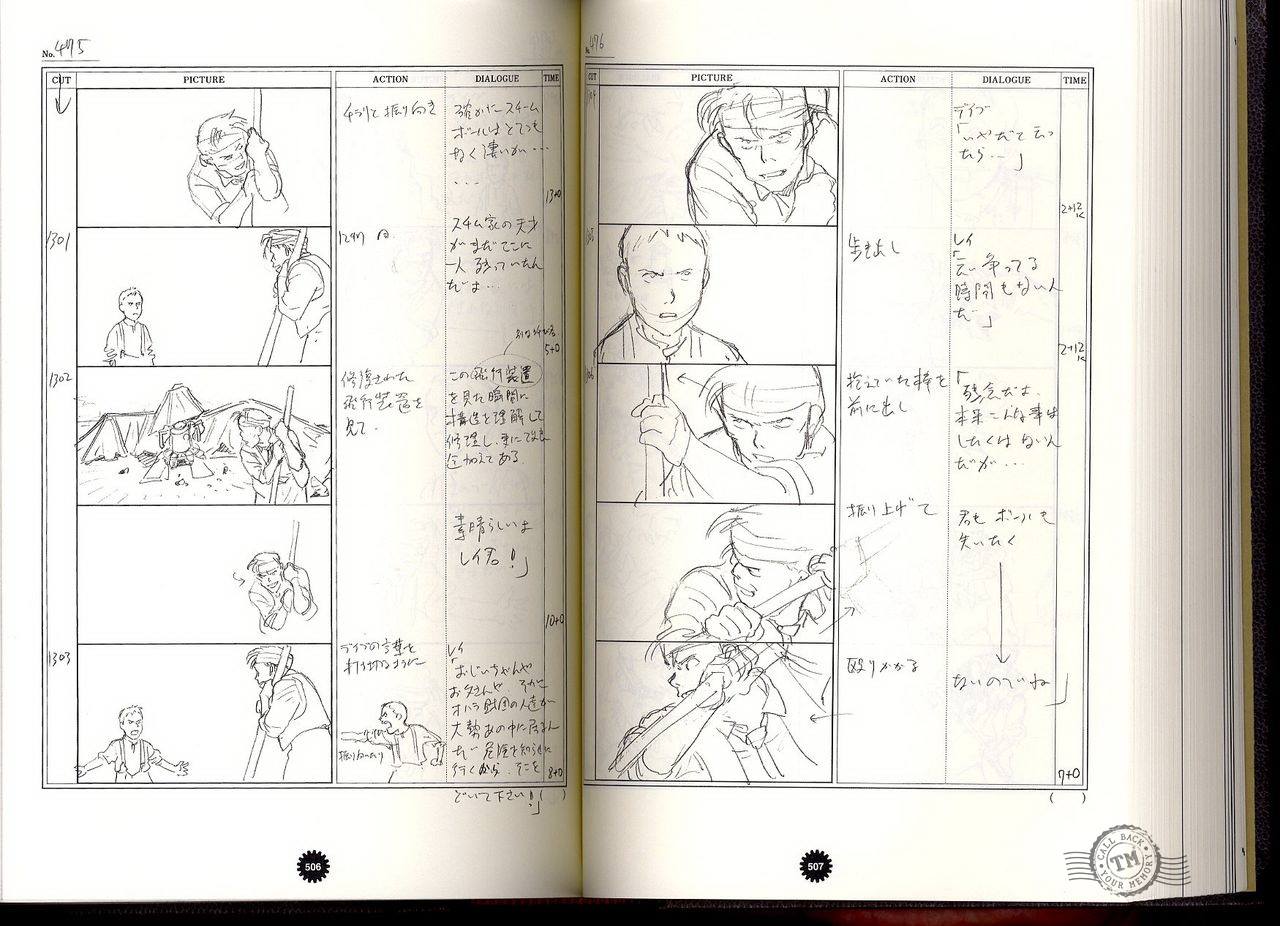 No. 475
CUT
PICTURE
ACTION
DIALOGUE
TIME
チラリと振り向き
確かにスチーム
ボールはとてつも
なく凄いが・・・
・・・
13+0
1301
スチム家の天才
がまだここに
一人残っていたん
だよ・・
5+0
1302
修復された
飛行装置を
見て.
この飛行装置
を見た瞬間に
構造を理解して
修理し、更に改良
加えてある
素晴らしいよ
レイ君!」
10+0
1303
デイブの言葉を
打ち切るように
振りはらい
レイ
「おじいちゃんや
お父さんや それに
オハラ財団の人達が
大勢あの中に居るん
だ 危険を知らせに
行くから、そこを
どいて下さい!」
8+0
( )
506
No. 476
CUT
PICTURE
ACTION
DIALOGUE
TIME
デイブ
「いやだと言っ
たら・・」
2+12
歩き出し
レイ
「言い争ってる
時間もないん
だ」
2+12
抱えていた棒を
前に出し
「残念だよ.
本来こんな事は
したくはないん
だが・・・
振り上げて
君も ボールも
失いたく
殴りかかる
ないのでね」
7+0
( )
507
CALL BACK
TM
YOUR MEMORY